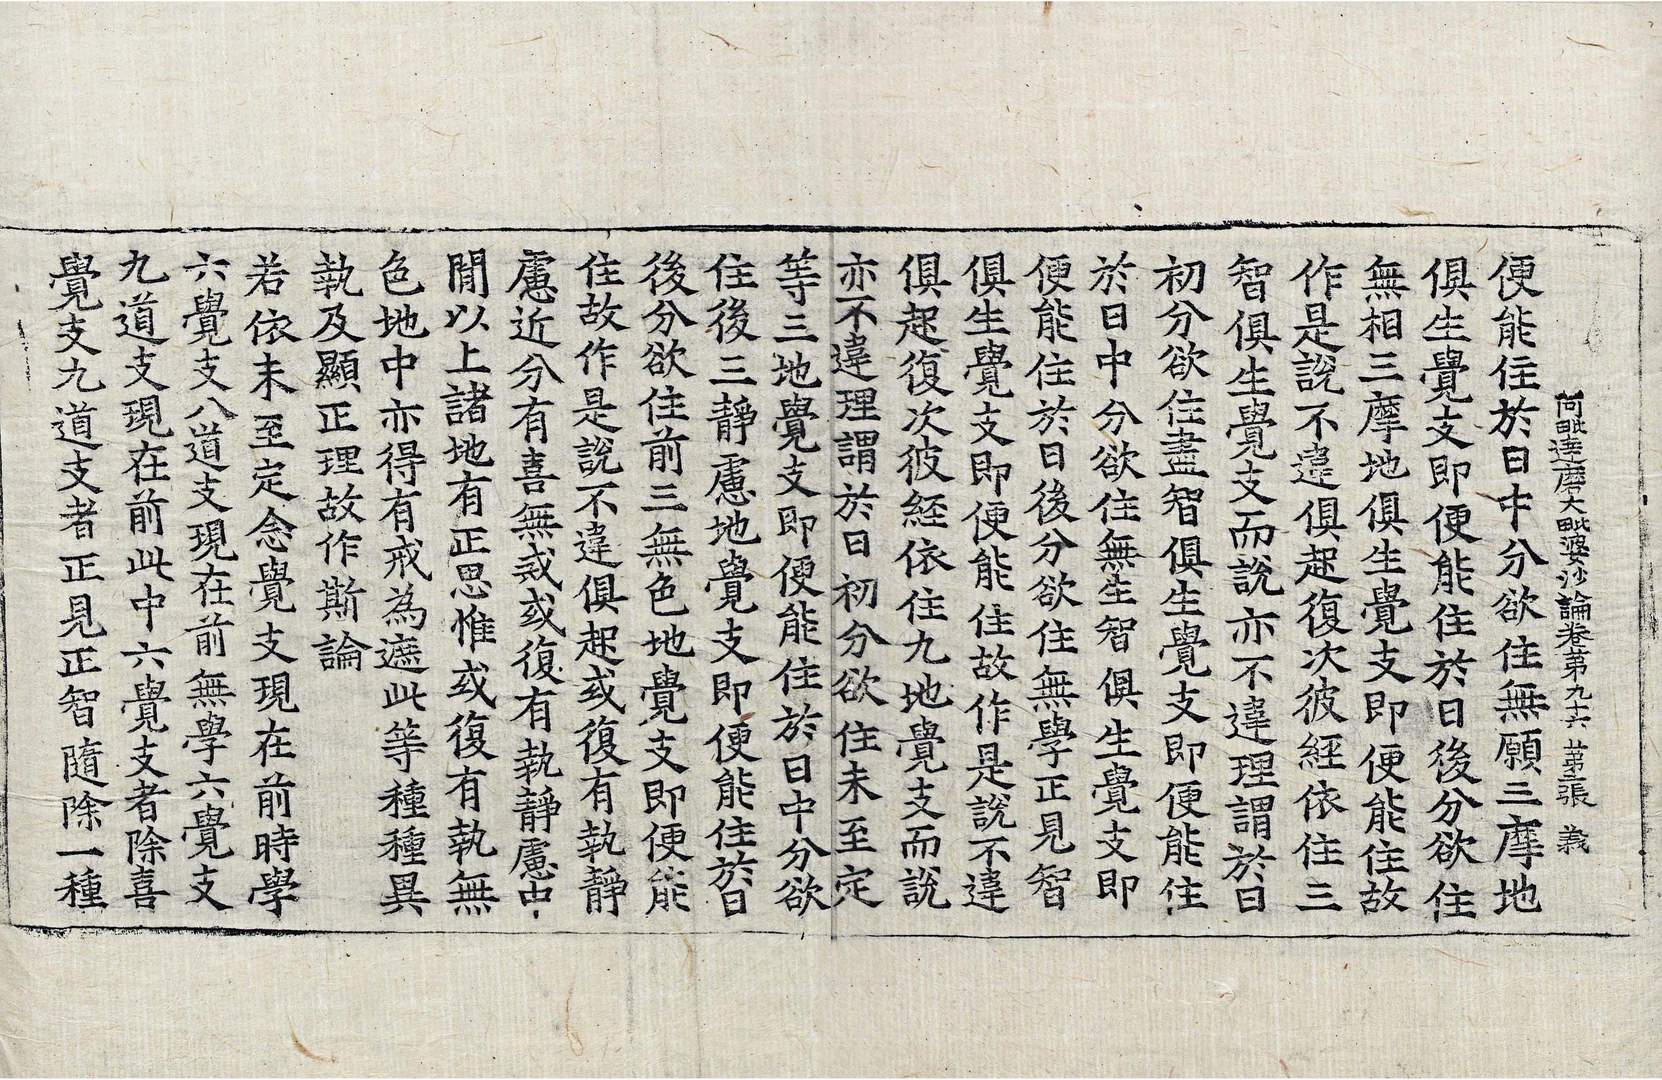 阿毗達磨大毗婆沙論卷第九十六 第三張 義
便能住於日中分欲住無願三摩地
俱生覺支即便能住於日後分欲住
無相三摩地俱生覺支即便能住故
作是說不違俱起復次彼經依住三
智俱生覺支而說亦不違理謂於日
初分欲住盡智俱生覺支即便能住
於日中分欲住無生智俱生覺支即
便能住於日後分欲住無學正見智
俱生覺支即便能住故作是說不違
俱起復次彼經依住九地覺支而說
亦不違理謂於日初分欲住未至定
等三地覺支即便能住於日中分欲
住後三靜慮地覺支即便能住於日
後分欲住前三無色地覺支即便能
住故作是說不違俱起或復有執靜
慮近分有喜無戒或復有執靜慮中
閒以上諸地有正思惟或復有執無
色地中亦得有戒為遮此等種種異
執及顯正理故作斯論
若依未至定念覺支現在前時學
六覺支八道支現在前無學六覺支
九道支現在前此中六覺支者除喜
覺支九道支者正見正智隨除一種